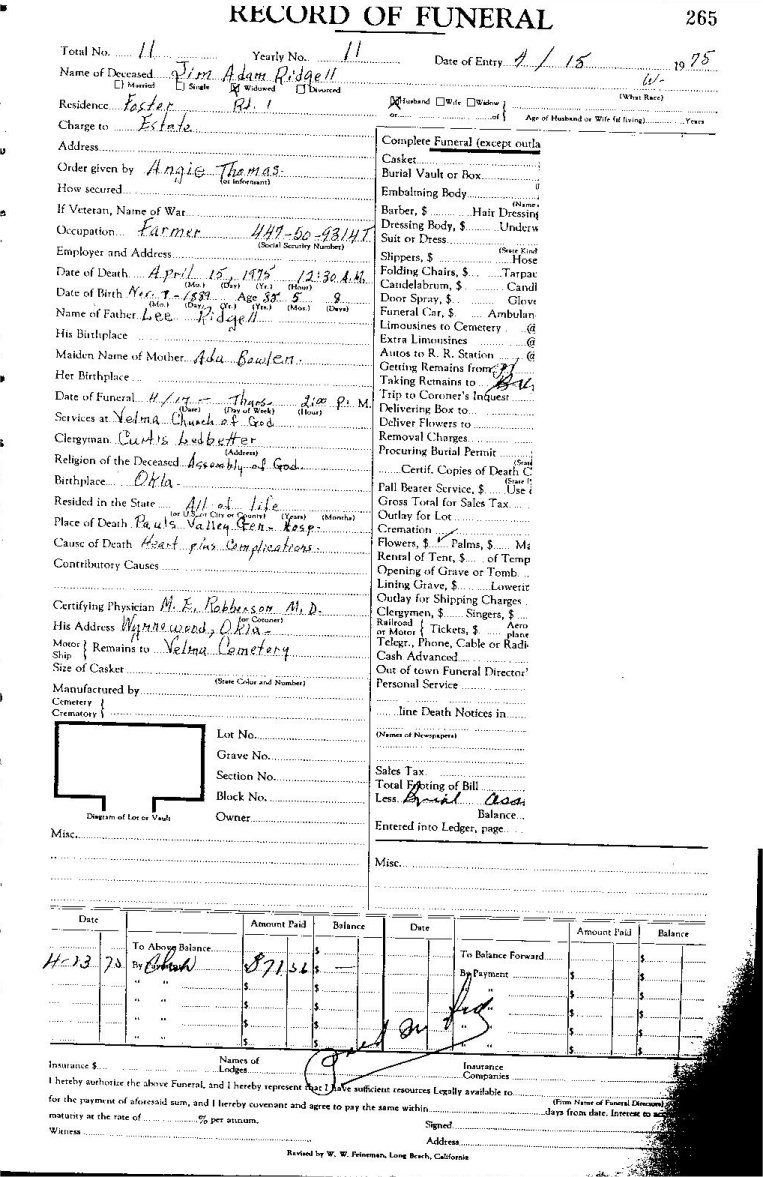 RECORD OF FUNERAL 265
Total No. 11 Yearly No. 11 Date of Entry 4 / 15 1975
Name of Deceased Jim Adam Ridgell W-
Married Single Widowed Divorced (What Race)
Residence Foster Rd. 1 Husband Wife Widow
or of Age of Husband or Wife (if living) Years
Charge to Estate
Address
Order given by Angie Thomas
(or Informant)
How secured
If Veteran, Name of War
Occupation Farmer 447-50-9314T
(Social Security Number)
Employer and Address
Date of Death April 15, 1975 12:30 A.M.
(Mo.) (Day) (Yr.) (Hour)
Date of Birth Nov. 7 - 1889 Age 85 5 8
(Mo.) (Day) (Yr.) (Yrs.) (Mos.) (Days)
Name of Father Lee Ridgell
His Birthplace
Maiden Name of Mother Ada Bowlen
Her Birthplace
Date of Funeral 4/17 - Thurs. 2:00 P. M.
(Date) (Day of Week) (Hour)
Services at Velma Church of God
Clergyman Curtis Ledbetter
(Address)
Religion of the Deceased Assembly of God
Birthplace Okla
Resided in the State All of life
(or U.S. or City or County) (Years) (Months)
Place of Death Pauls Valley Gen. Hosp.
Cause of Death Heart plus Complications.
Contributory Causes
Certifying Physician M. E. Robberson M. D.
(or Coroner)
His Address Wynnewood, Okla-
Motor Ship } Remains to Velma Cemetery
Size of Casket
(State Color and Number)
Manufactured by
Cemetery
Crematory
Lot No.
Grave No.
Section No.
Block No.
Diagram of Lot or Vault Owner
Misc.
Complete Funeral (except outla
Casket
Burial Vault or Box
Embalming Body
(Name
Barber, $ Hair Dressing
Dressing Body, $ Underw
Suit or Dress
(State Kind
Slippers, $ Hose
Folding Chairs, $ Tarpau
Candelabrum, $ Candl
Door Spray, $ Glove
Funeral Car, $ Ambulan
Limousines to Cemetery @
Extra Limousines @
Autos to R. R. Station @
Getting Remains from
Taking Remains to
Trip to Coroner's Inquest
Delivering Box to
Deliver Flowers to
Removal Charges
Procuring Burial Permit
(State
Certif. Copies of Death C
(State
Pall Bearer Service, $ Use
Gross Total for Sales Tax
Outlay for Lot
Cremation
Flowers, $ Palms, $ Ma
Rental of Tent, $ of Temp
Opening of Grave or Tomb
Lining Grave, $ Lowerin
Outlay for Shipping Charges
Clergymen, $ Singers, $
Railroad or Motor { Tickets, $ Aero plane
Telegr., Phone, Cable or Radi
Cash Advanced
Out of town Funeral Director'
Personal Service
line Death Notices in
(Names of Newspapers)
Sales Tax
Total Footing of Bill
Less Burial Assn
Balance
Entered into Ledger, page
Misc.
Date Amount Paid Balance Date Amount Paid Balance
To Above Balance $ To Balance Forward $
4-23 75 By Payment $ 71 56 $ — By Payment $
" " $ $ " " $ $
" " $ $ " " $ $
" " $ $ " " $ $
" " $ $ " " $ $
Paid In Full
Insurance $ Names of Lodges Insurance Companies
I hereby authorize the above Funeral, and I hereby represent that I have sufficient resources Legally available to
(Firm Name of Funeral Directors)
for the payment of aforesaid sum, and I hereby covenant and agree to pay the same within days from date. Interest to
maturity at the rate of % per annum. Signed
Witness Address
Revised by W. W. Feineman, Long Beach, California